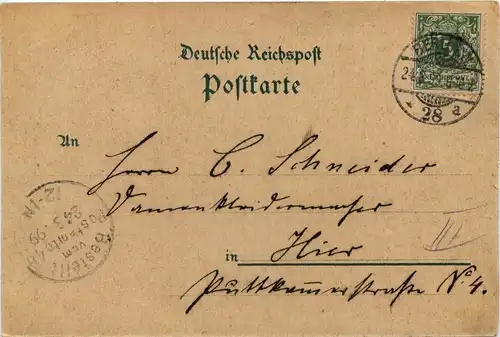 Deutsche Reichspost
Postkarte
BERLIN, W
24.3
28 a
An
Herrn C. Schneider
Damenkleidermacher
in Hier
Puttkamerstraße N. 4.
Bestellt
vom
Postamte 48
24/3 99
12-1N